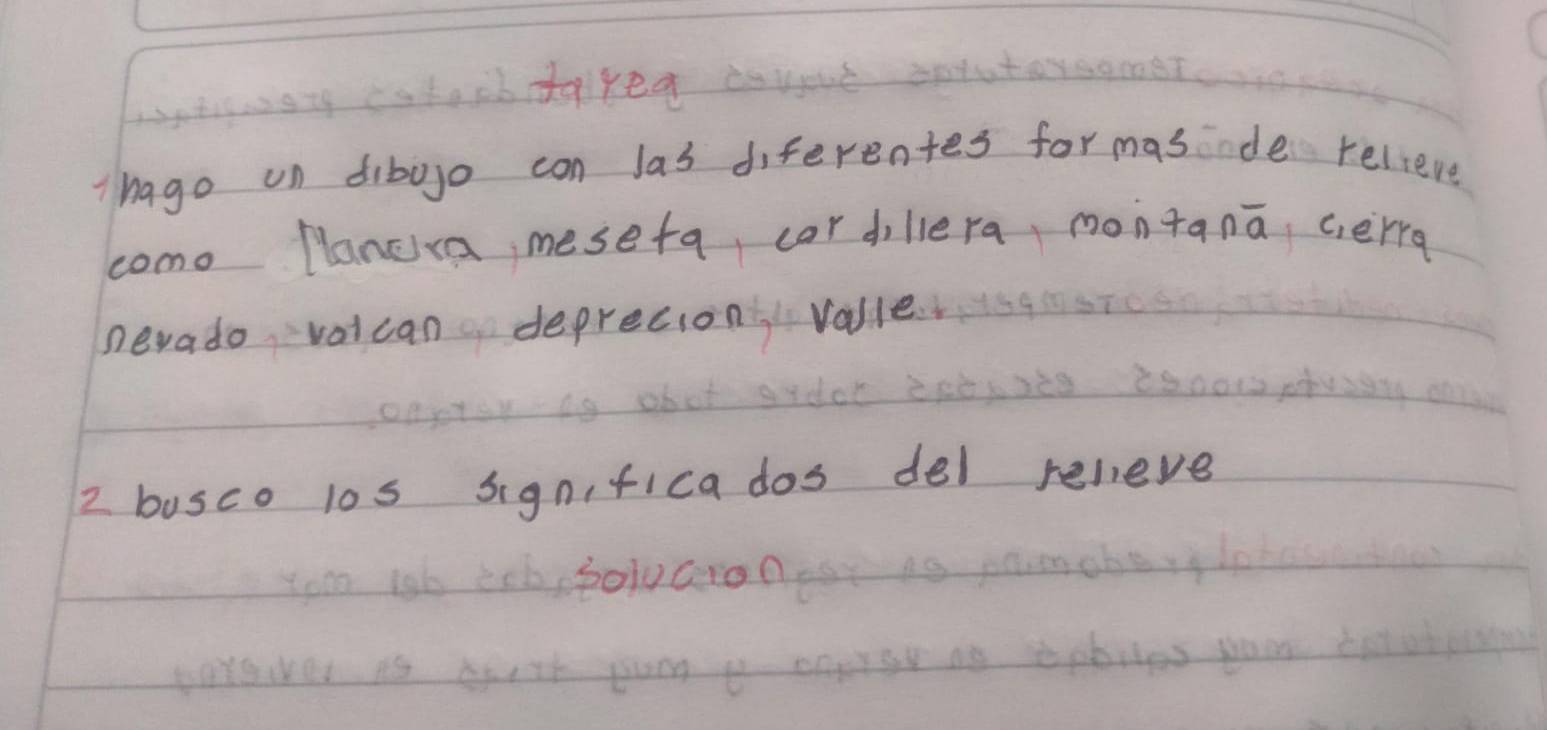 tarea
1 hago un dibujo con las diferentes formas de relieve
como llanura, meseta, cordillera, montanā, cierra
nevado, volcan, deprecion, valle.
2 busco los significados del relieve
solucion